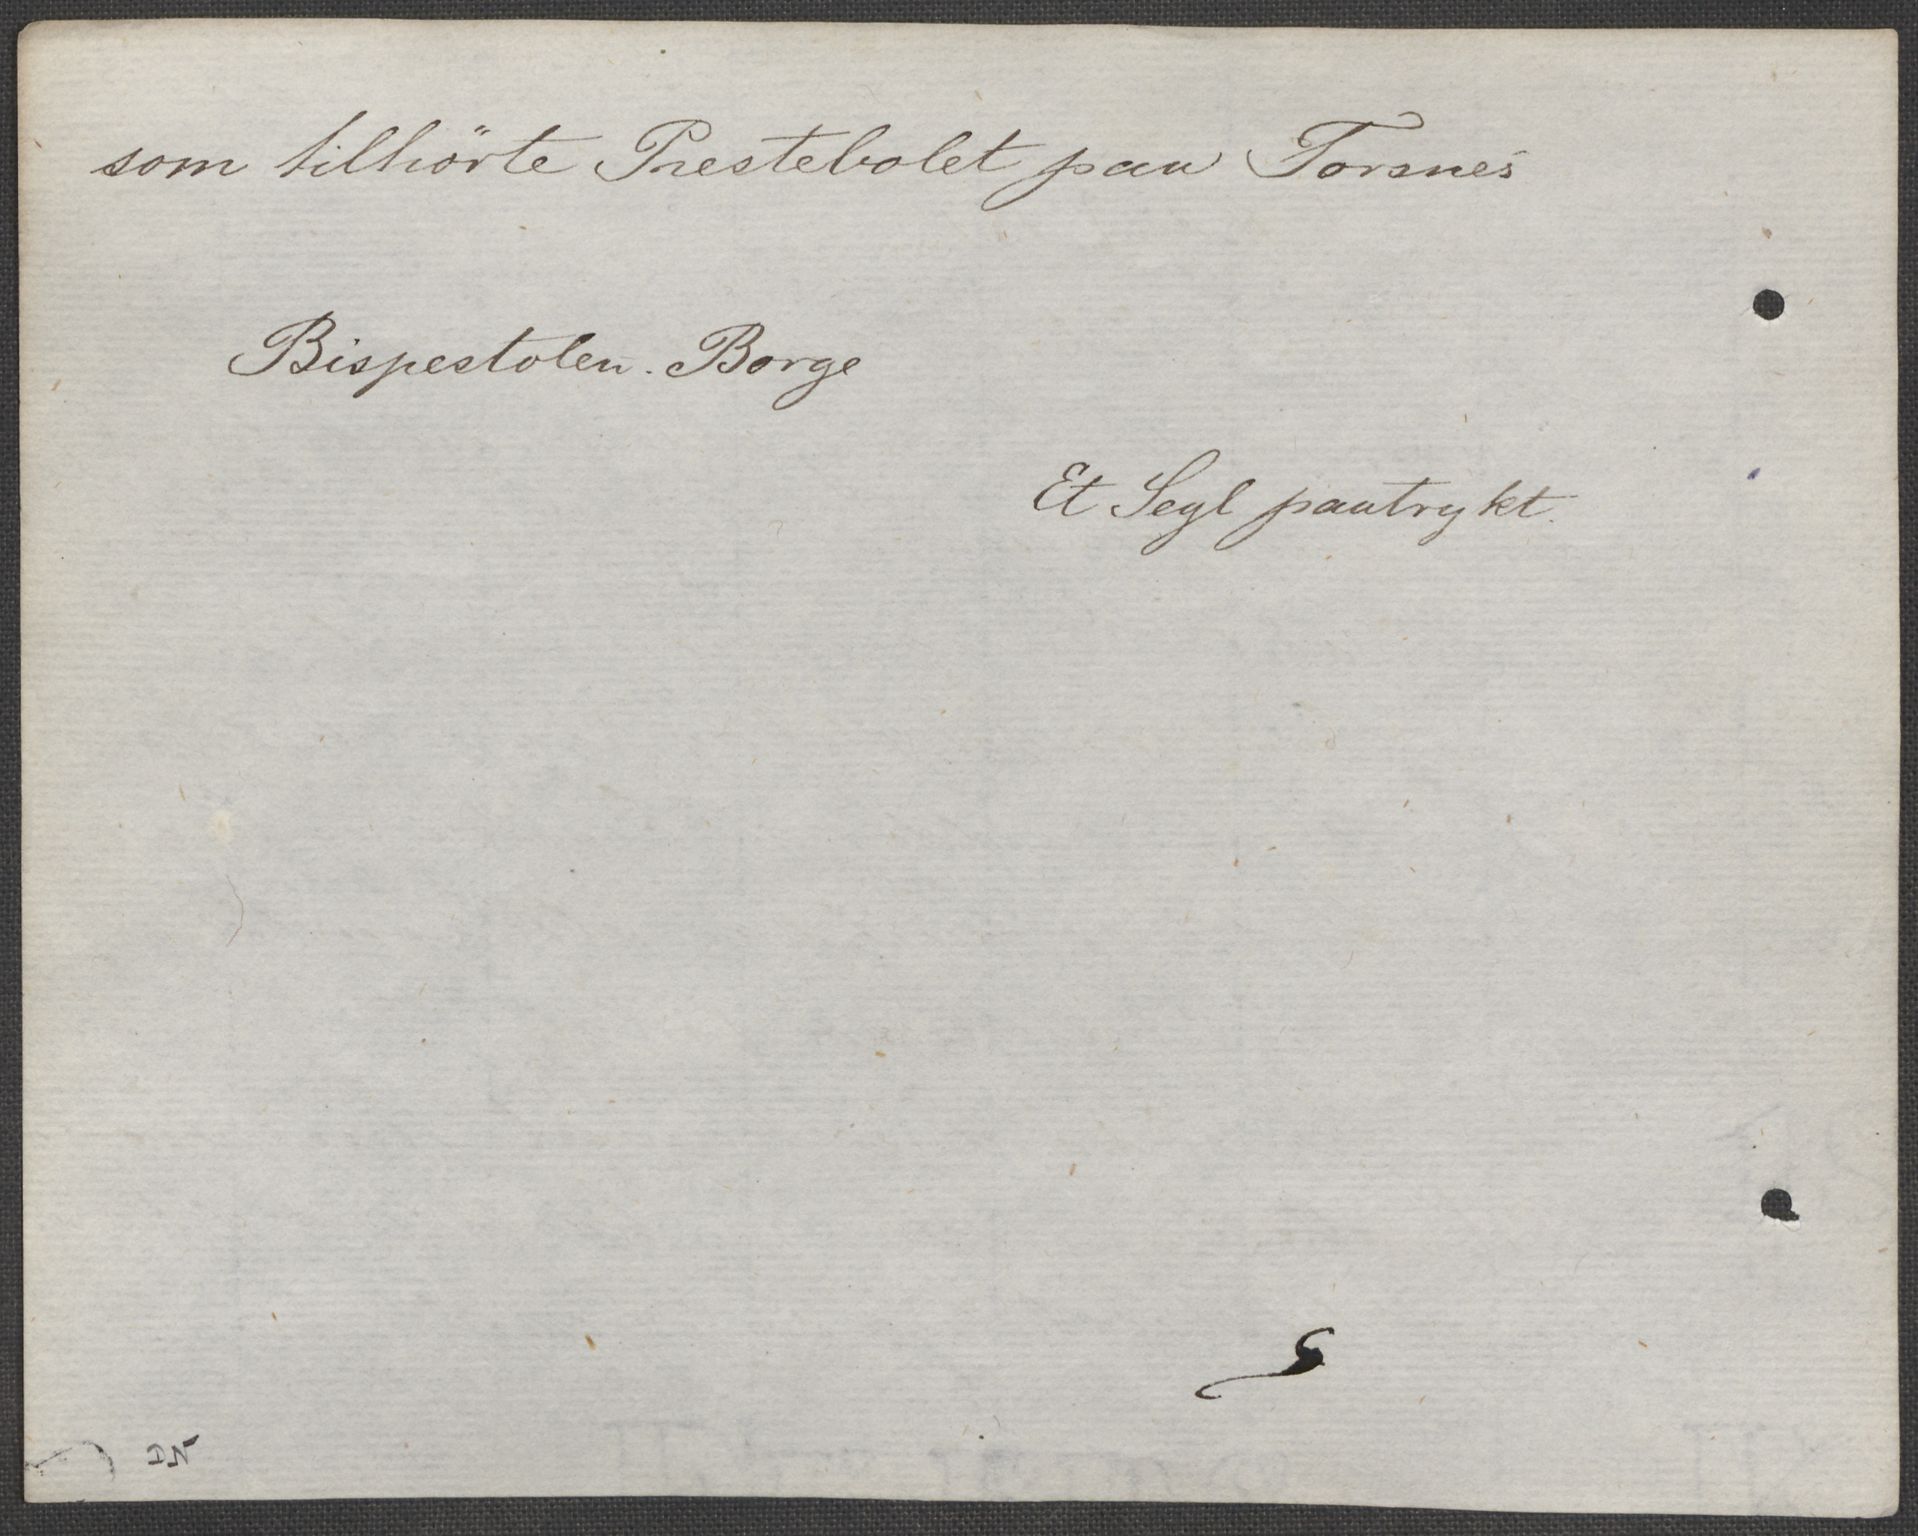 som tilhörte Prestebolet paa Torsnes
Bispestolen. Borge
Et Segl paatrykt.